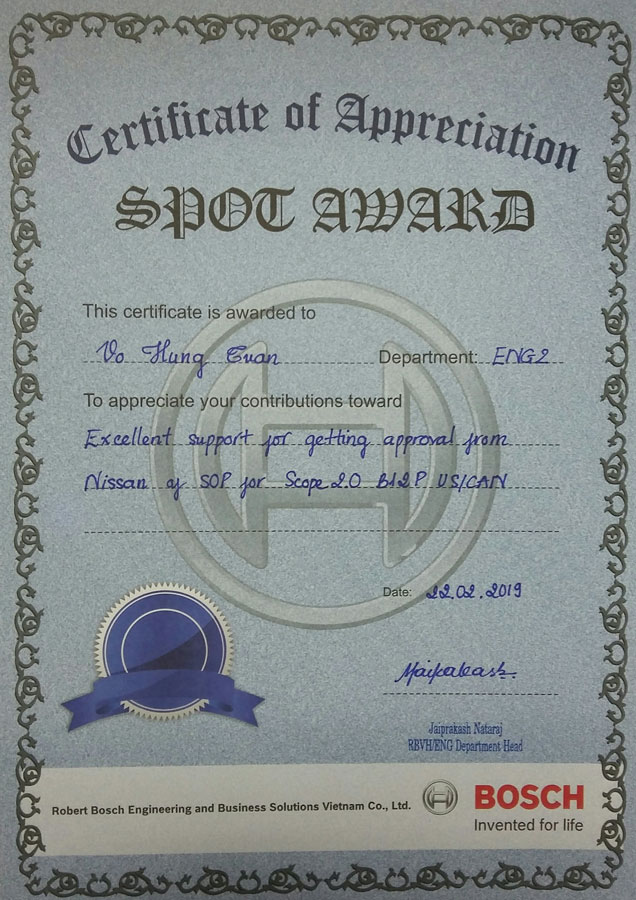 Certificate of Appreciation
SPOT AWARD
This certificate is awarded to
Vo Hung Tuan Department: ENG2
To appreciate your contributions toward
Excellent support for getting approval from
Nissan of SOP for Scope 2.0 B12P US/CAN
Date: 22.02.2019
Jaiprakash Nataraj
RBVH/ENG Department Head
Robert Bosch Engineering and Business Solutions Vietnam Co., Ltd.
BOSCH
Invented for life